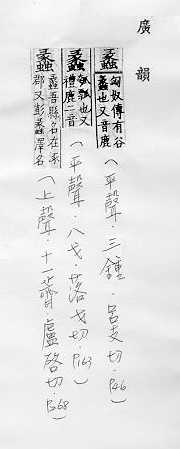 廣韻
蠡 匈奴傳有谷蠡也又音鹿（平聲．三鍾．呂支切．P46）
蠡 匏瓢也又禮鹿二音（平聲．八戈．落戈切．P163）
蠡 蠡吾縣名在涿郡又彭蠡澤名（上聲．十一薺．盧啓切．P268）